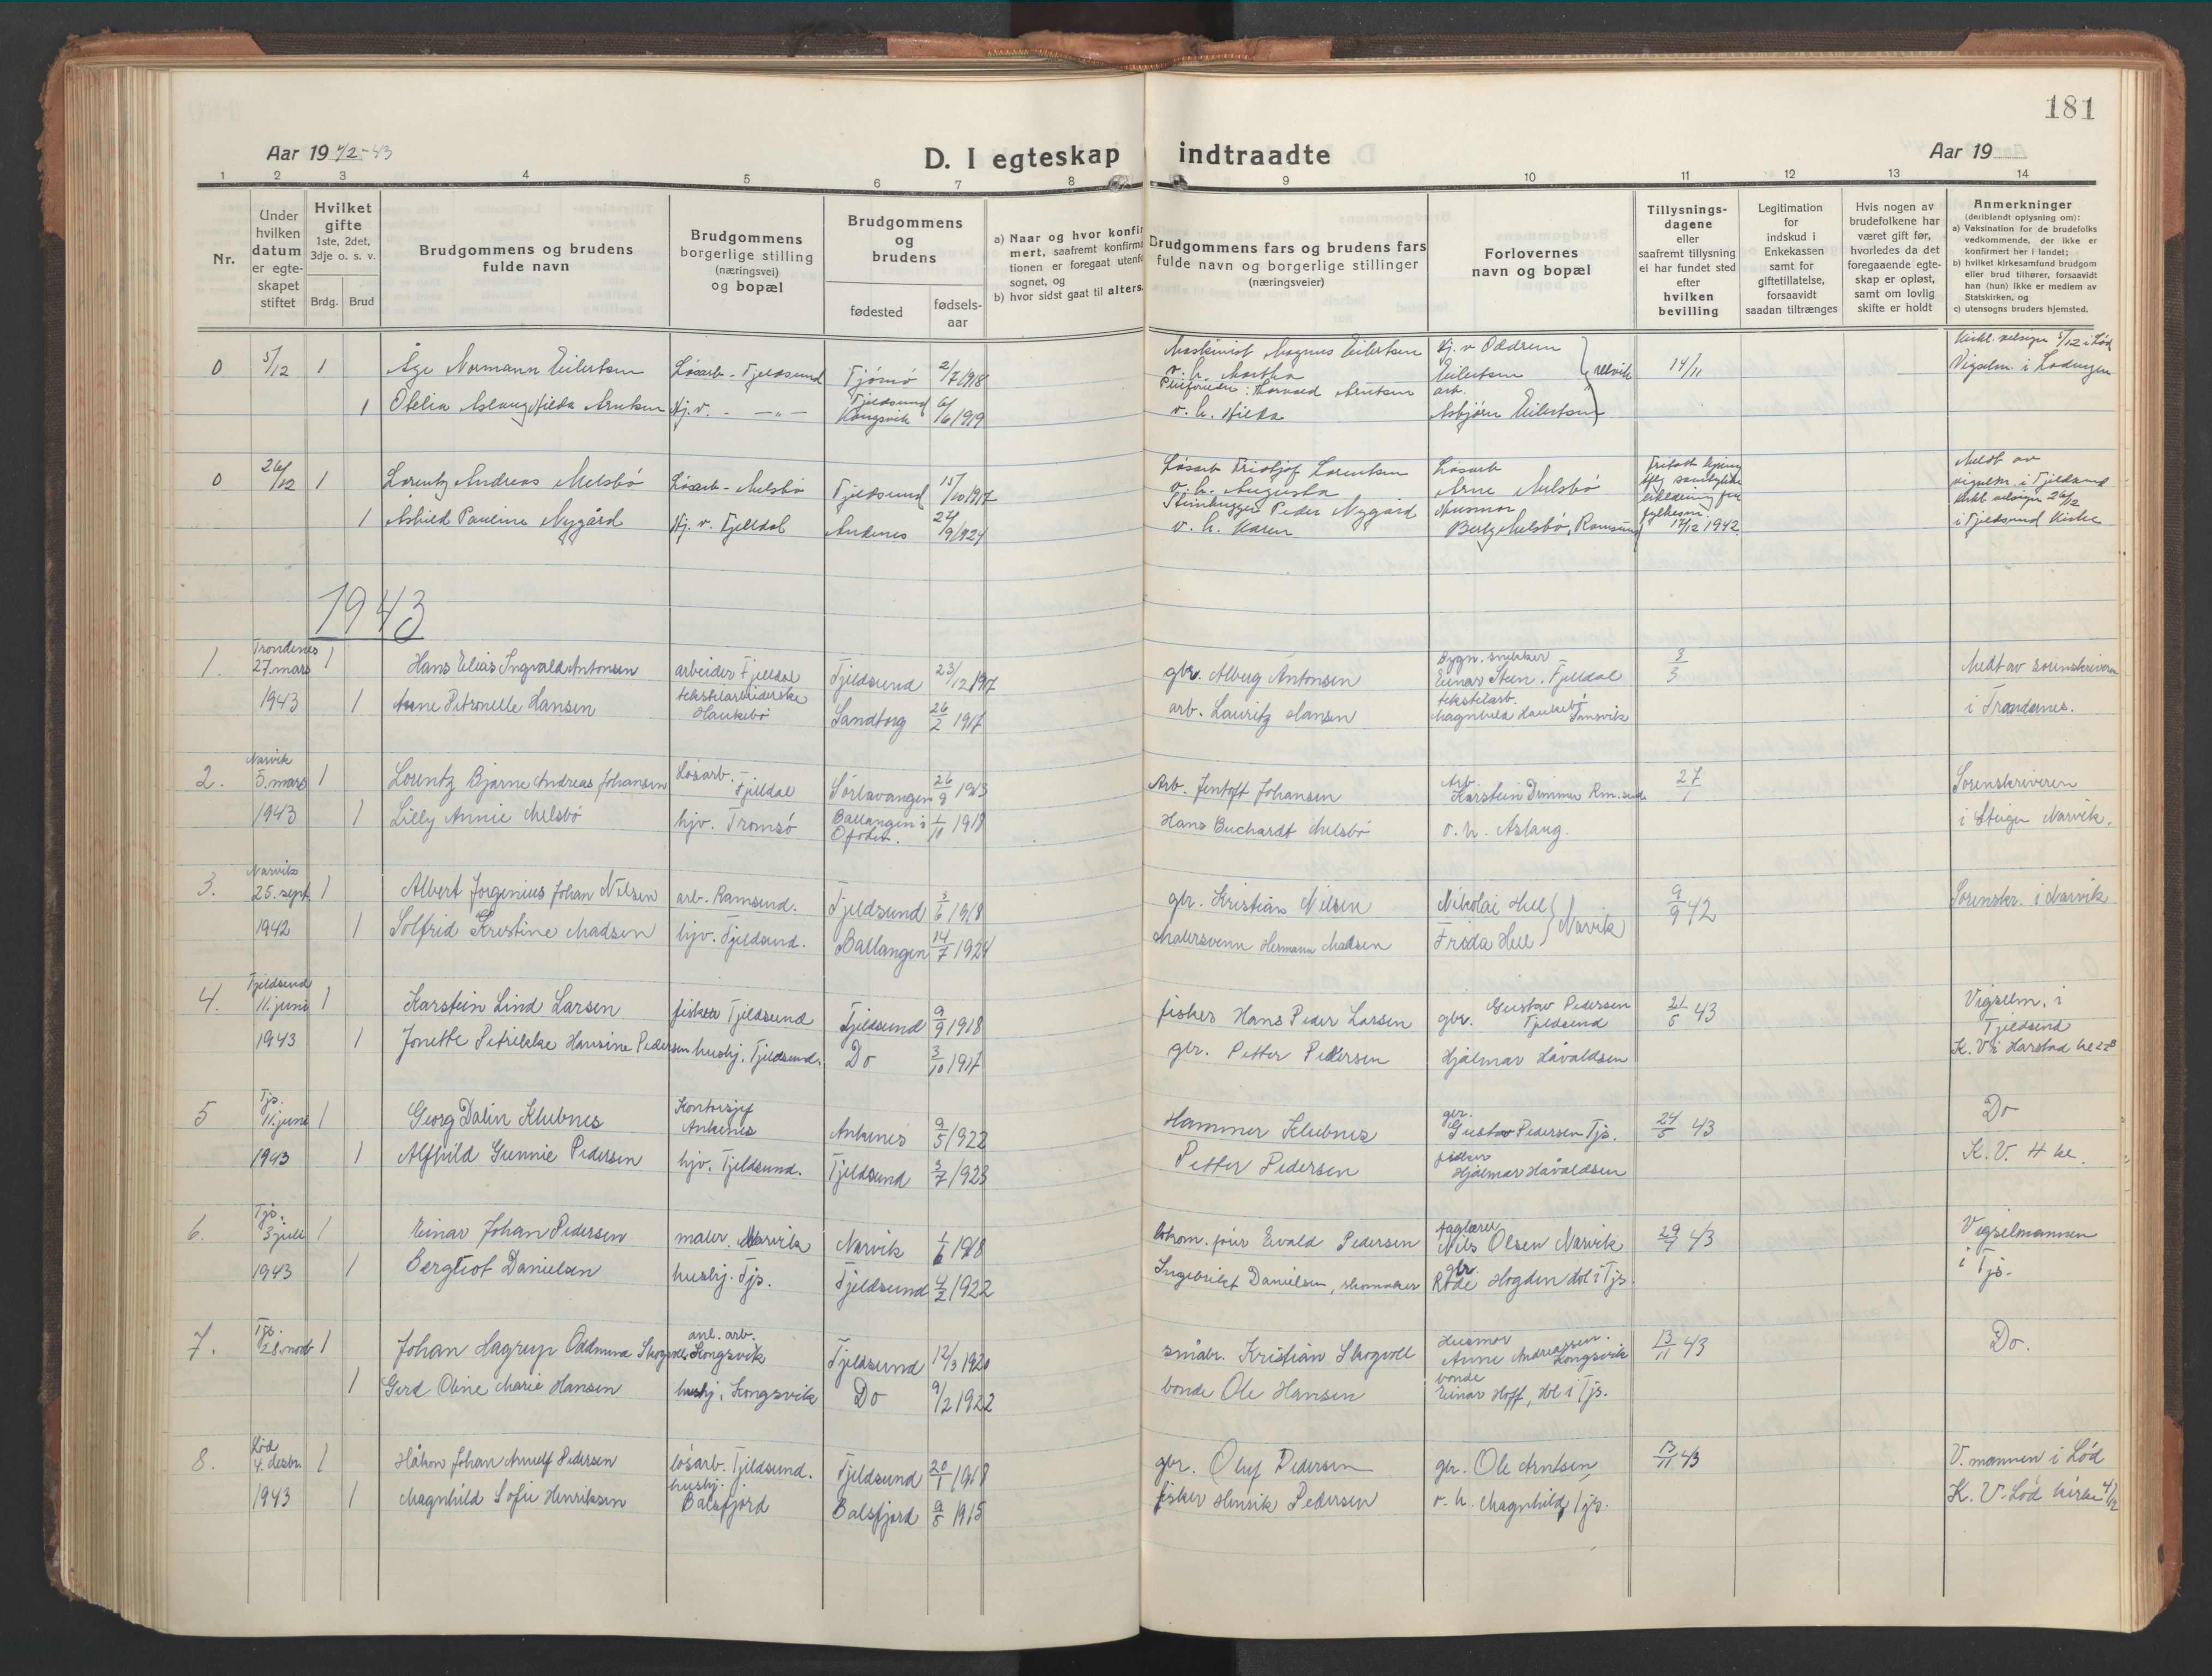 181
Aar 19 42-43
D. I egteskap indtraadte
Aar 19
1 2 3 4 5 6 7 8 9 10 11 12 13 14
Nr.
Under hvilken datum er egte-skapet stiftet
Hvilket gifte
1ste, 2det, 3dje o. s. v.
Brdg. Brud
Brudgommens og brudens fulde navn
Brudgommens borgerlige stilling (næringsvei) og bopæl
Brudgommens og brudens
fødested
fødsels-aar
a) Naar og hvor konfir
mert, saafremt konfirma
tionen er foregaat utenfo
sognet, og
b) hvor sidst gaat til alters.
Brudgommens fars og brudens fars
fulde navn og borgerlige stillinger
(næringsveier)
Forlovernes
navn og bopæl
Tillysnings-
dagene
eller
saafremt tillysning
ei har fundet sted
efter
hvilken
bevilling
Legitimation
for
indskud i
Enkekassen
samt for
giftetillatelse,
forsaavidt
saadan tiltrænges
Hvis nogen av
brudefolkene har
været gift før,
hvorledes da det
foregaaende egte-
skap er opløst,
samt om lovlig
skifte er holdt
Anmerkninger
(deriblandt oplysning om):
a) Vaksination for de brudefolks
vedkommende, der ikke er
konfirmert her i landet;
b) hvilket kirkesamfund brudgom
eller brud tilhører, forsaavidt
han (hun) ikke er medlem av
Statskirken, og
c) utensogns bruders hjemsted.
0 5/12 1 Åge Normann Eilertsen Løsarb. - Fjeldsund Tjømø 2/7 1918 Maskinist Magnus Eilertsen v. h. Martha Hj. v. Oddrun Eilertsen 14/11 Vigselm. i Lødingen
1 Otelia Aslaug Hilda Arntsen Hj. v. - " - Tjeldsund Kongsvik 6/6 1919 Harvald Arntsen v. h. Hilda arb. Asbjørn Eilertsen
0 26/12 1 Lorentz Andreas Melsbö Løsarb - Melsbö Tjeldsund 15/10 1917 Løsarb Fridtjof Lorentsen v. h. Augusta Løsarb Arne Melsbö 17/12 1942 Meldt av vigselm. i Tjeldsund
1 Ashild Pauline Nygård Hj. v. Fjelldal Andenes 24/9 1924 Peder Nygård v. h. Karen Husmor Berly Melsbö, Ramsund i Tjeldsund kirke
1943
1. Trondenes 27. mars 1943 1 Hans Elias Ingvald Antonsen arbeider Fjelldal Tjeldsund 23/12 1917 gbr. Alberg Antonsen Bygn. snekker Einar Steen, Fjelldal 3/3 Meldt av sorenskriveren
1 Anne Petronelle Hansen tekstilarbeiderske Haukebö Sandtorg 26/2 1917 arb. Lauritz Hansen tekstilarb. Magnhild Haukebö i Trondenes.
2. Narvik 5. mars 1943 1 Lorentz Bjarne Andreas Johansen Løsarb. Fjelldal Sørlavangen 26/8 1913 Arb. Jentoft Johansen Arb. Karstein Dimmen 27/1 Sorenskriveren
1 Lilly Annie Melsbö hjv. Tromsö Ballangen i Ofoten. 1/10 1918 Hans Buchardt Melsbö v. h. Aslaug. i Narvik.
3. Narvik 25. sept. 1942 1 Albert Jorgenius Johan Nilsen arb. Ramsund. Tjeldsund 3/6 1918 gbr. Kristian Nilsen Nikolai Hell 9/9 42 Sorenskr. i Narvik
1 Solfrid Kristine Madsen hjv. Tjeldsund. Ballangen 14/7 1924 Malersvenn Hermann Madsen Frida Hell Narvik
4. Tjeldsund 11. juni 1943 1 Karstein Lind Larsen fisker Tjeldsund Tjeldsund 9/9 1918 fisker Hans Peder Larsen gbr. Gustav Pedersen Tjeldsund 21/5 43 Vigselm. i Tjeldsund
1 Jonette Petrikke Hansine Pedersen hushj. Tjeldsund. Do 3/10 1917 gbr. Petter Pedersen Hjalmar Håvaldsen K. V. i Harstad
5 Tjs. 11. juni 1943 1 Georg Dalin Klubnes Kontorsjef Ankenes Ankenes 9/5 1922 Hammer Klubnes gbr. Gustav Pedersen Tjs. 24/5 43 Do
1 Alfhild Gunnie Pedersen hjv. Tjeldsund. Tjeldsund 3/7 1923 Petter Pedersen fisker Hjalmar Håvaldsen K. V.
6. Tjs. 3 juli 1943 1 Einar Johan Pedersen maler. Narvik Narvik 1/6 1918 Evald Pedersen faglærer Nils Olsen Narvik 43 Vigselmannen
1 Bergliot Danielsen hushj. Tjs. Tjeldsund 4/2 1922 Ingebrikt Danielsen, skomaker gbr. Hogden Hol i Tjs. i Tjs.
7. Tjs. 28. novb 1 Johan Hagrup Oddmund Skogvoll anl. arb. Kongsvik Tjeldsund 12/3 1920 småbr. Kristian Skogvoll Husmor Anne Andreassen. Kongsvik 13/11 43 Do.
1 Gerd Oline Marie Hansen hushj. Kongsvik Do 9/2 1922 bonde Ole Hansen bonde Einar Hoff, Hol i Tjs.
8. Lød 4. desbr. 1943 1 Håkon Johan Arnulf Pedersen løsarb. Tjeldsund. Tjeldsund 20/1 1918 gbr. Oluf Pedersen gbr. Ole Arntsen 13/11 43 V. mannen i Lød
1 Magnhild Sofie Henriksen hushj. Balsfjord Balsfjord 9/5 1915 fisker Henrik Pedersen v. h. Magnhild Tjs. K. V. Lød kirke 4/12